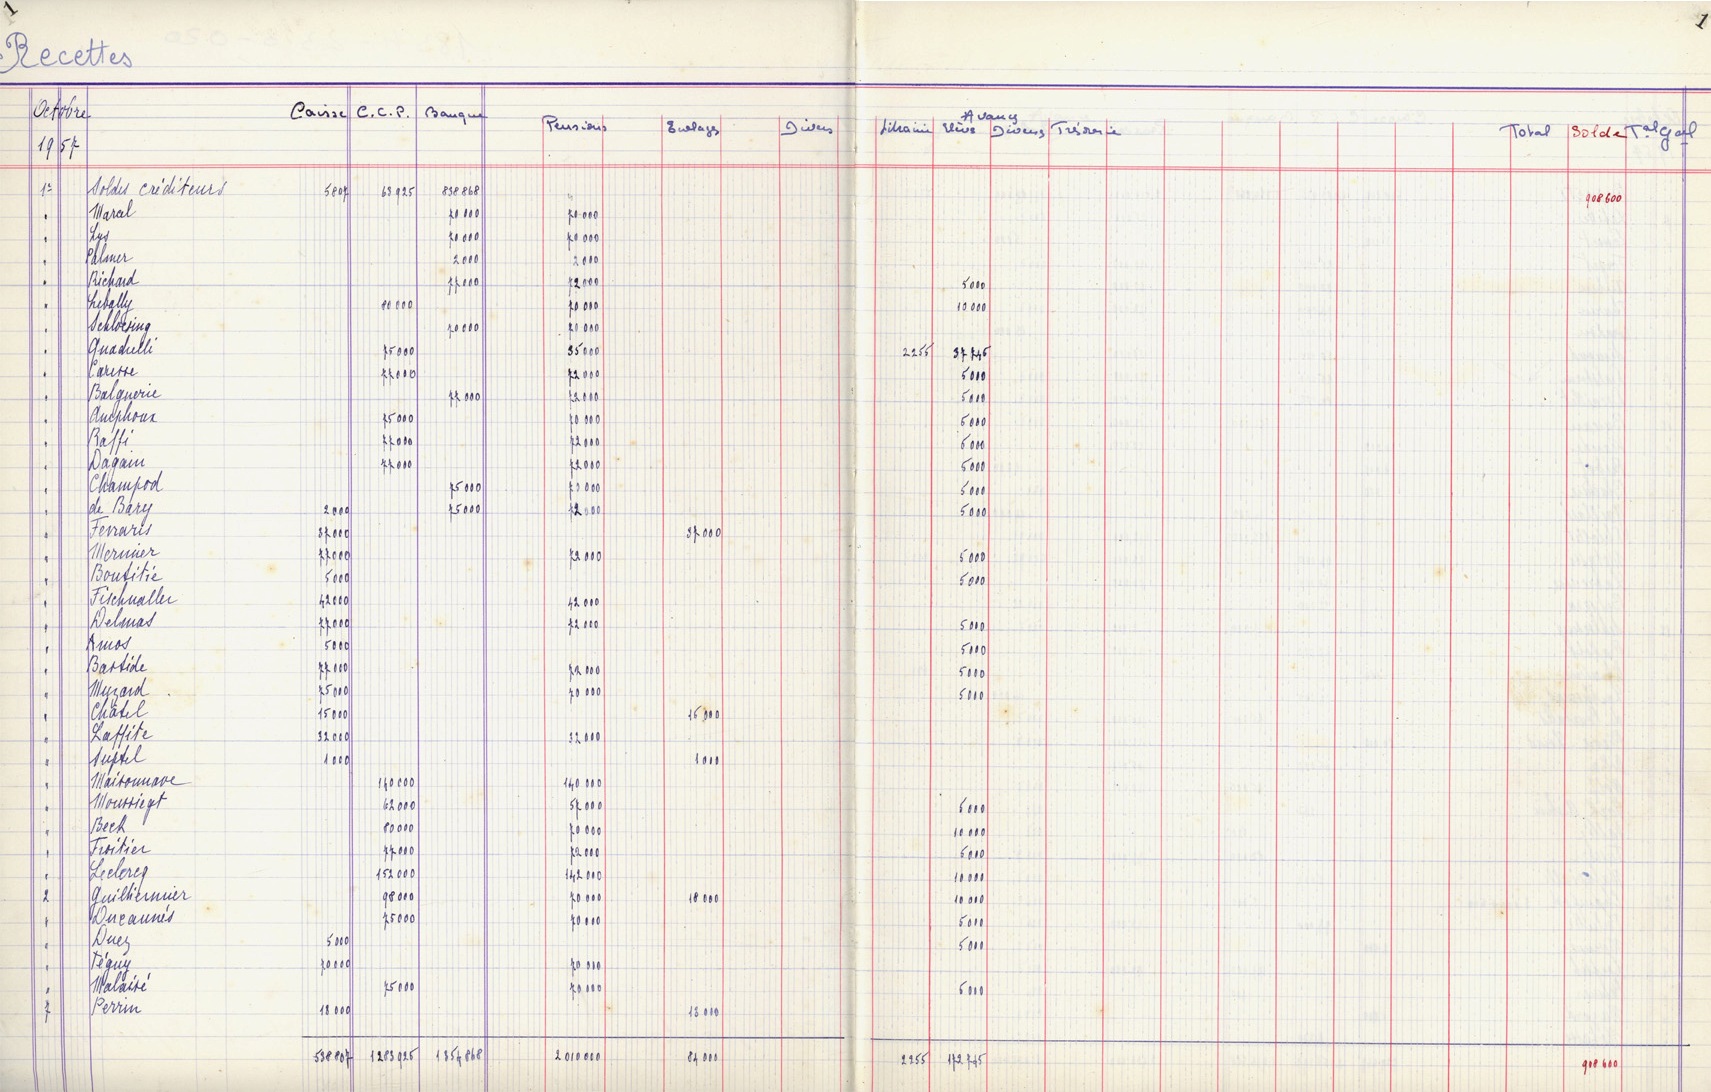 1
1
Recettes
Octobre Caisse C.C.P. Banque Pensions Divers Librairie Avances Elèves Divers Trésorerie Total Solde Tal Gal
1957
1er Soldes créditeurs 5807 63925 838868 908600
" Marcel 70000 70000
" Lys 70000 70000
" Palmer 2000 2000
" Richard 77000 72000 5000
" 80000 70000 10000
" Schloesing 70000 70000
" 75000 35000 2255 37745
" Caresse 77000 72000 5000
" Balguerie 77000 72000 5000
" Amphoux 75000 70000 5000
" Raffi 77000 72000 5000
" Dagain 77000 72000 5000
" Champod 75000 70000 5000
" de Bary 2000 75000 72000 5000
" Ferraris 37000 37000
" Mernier 77000 72000 5000
" Boutitie 5000 5000
" Fischnaller 42000 42000
" Delmas 77000 72000 5000
" Amos 5000 5000
" Bastide 77000 72000 5000
" Muzard 75000 70000 5000
" Châtel 15000 15000
" Laffite 32000 32000
" 1000 1000
" Maisonnave 140000 140000
" Moussiegt 62000 57000 5000
" Beck 80000 70000 10000
" Froitier 77000 72000 5000
" Leclercq 152000 142000 10000
2 Guilhermier 98000 70000 18000 10000
" 75000 70000 5000
" Duez 5000 5000
" Téguy 70000 70000
" Malaisé 75000 70000 5000
7 Perrin 13000 13000
538807 1283925 1354868 2010000 84000 2255 172745 908600